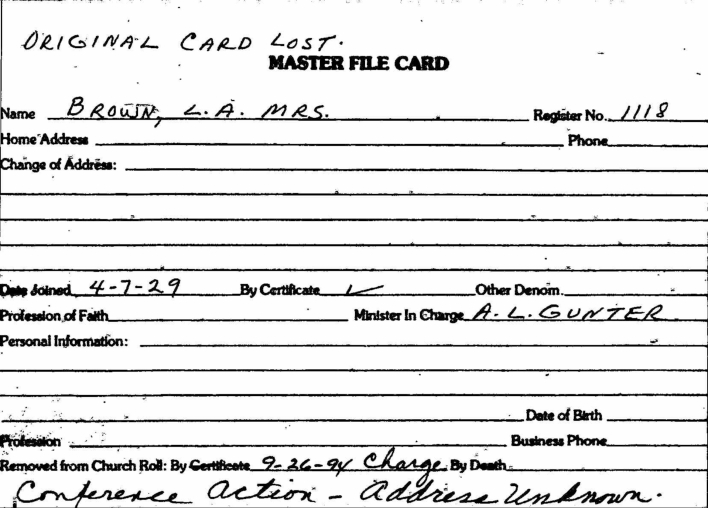 ORIGINAL CARD LOST.
MASTER FILE CARD
Name BROWN, L.A. MRS. Register No. 1118
Home Address Phone
Change of Address:
Date Joined 4-7-29 By Certificate ✓ Other Denom.
Profession of Faith Minister In Charge A.L. GUNTER
Personal Information:
Date of Birth
Profession Business Phone
Removed from Church Roll: By Certificate 9-26-94 Charge By Death
Conference action - address unknown.